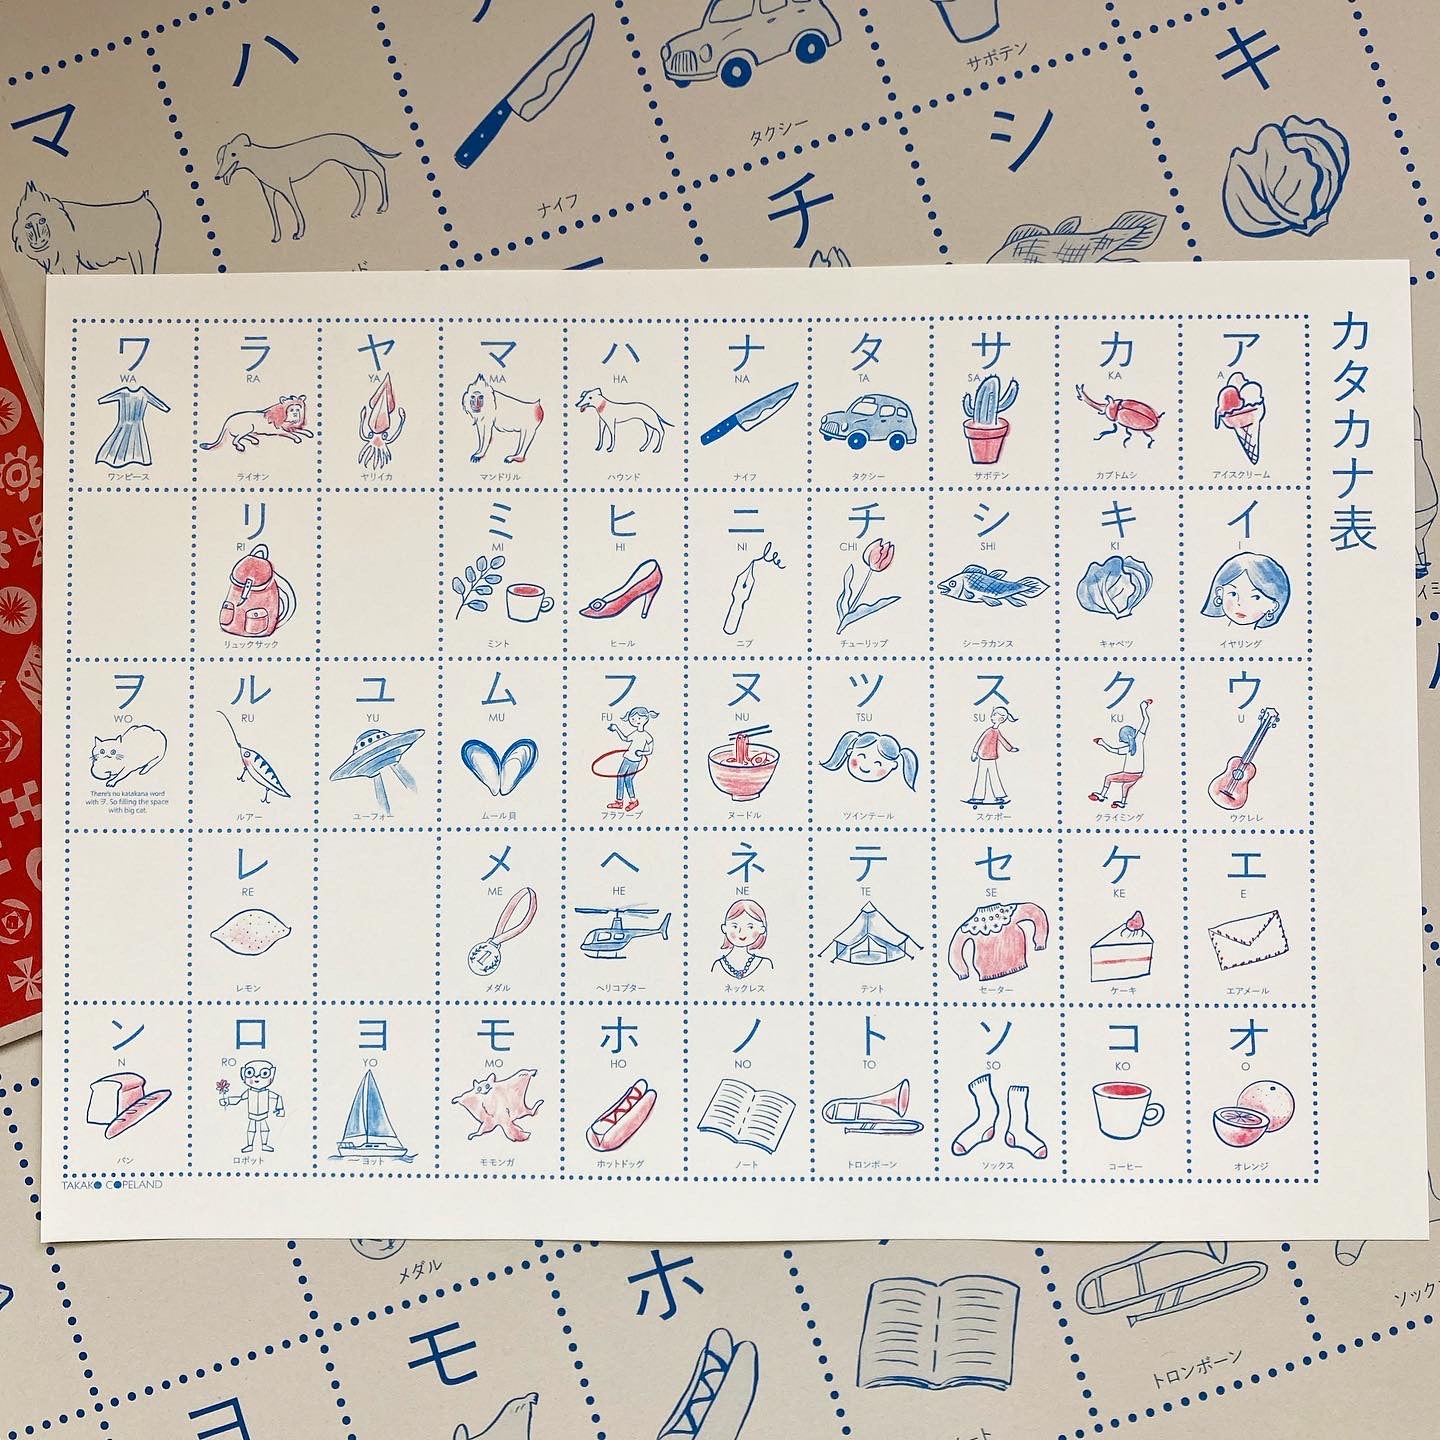 カタカナ表
ア
A
アイスクリーム
イ
I
イヤリング
ウ
U
ウクレレ
エ
E
エアメール
オ
O
オレンジ
カ
KA
カブトムシ
キ
KI
キャベツ
ク
KU
クライミング
ケ
KE
ケーキ
コ
KO
コーヒー
サ
SA
サボテン
シ
SHI
シーラカンス
ス
SU
スケボー
セ
SE
セーター
ソ
SO
ソックス
タ
TA
タクシー
チ
CHI
チューリップ
ツ
TSU
ツインテール
テ
TE
テント
ト
TO
トロンボーン
ナ
NA
ナイフ
ニ
NI
ニブ
ヌ
NU
ヌードル
ネ
NE
ネックレス
ノ
NO
ノート
ハ
HA
ハウンド
ヒ
HI
ヒール
フ
FU
フラフープ
ヘ
HE
ヘリコプター
ホ
HO
ホットドッグ
マ
MA
マンドリル
ミ
MI
ミント
ム
MU
ムール貝
メ
ME
メダル
モ
MO
モモンガ
ヤ
YA
ヤリイカ
ユ
YU
ユーフォー
ヨ
YO
ヨット
ラ
RA
ライオン
リ
RI
リュックサック
ル
RU
ルアー
レ
RE
レモン
ロ
RO
ロボット
ワ
WA
ワンピース
ヲ
WO
There's no katakana word
with ヲ. So filling the space
with big cat.
ン
N
パン
TAKAKO COPELAND
キ
サボテン
シ
タクシー
チ
ナイフ
ハ
マ
メダル
ホ
モ
ヨ
トロンボーン